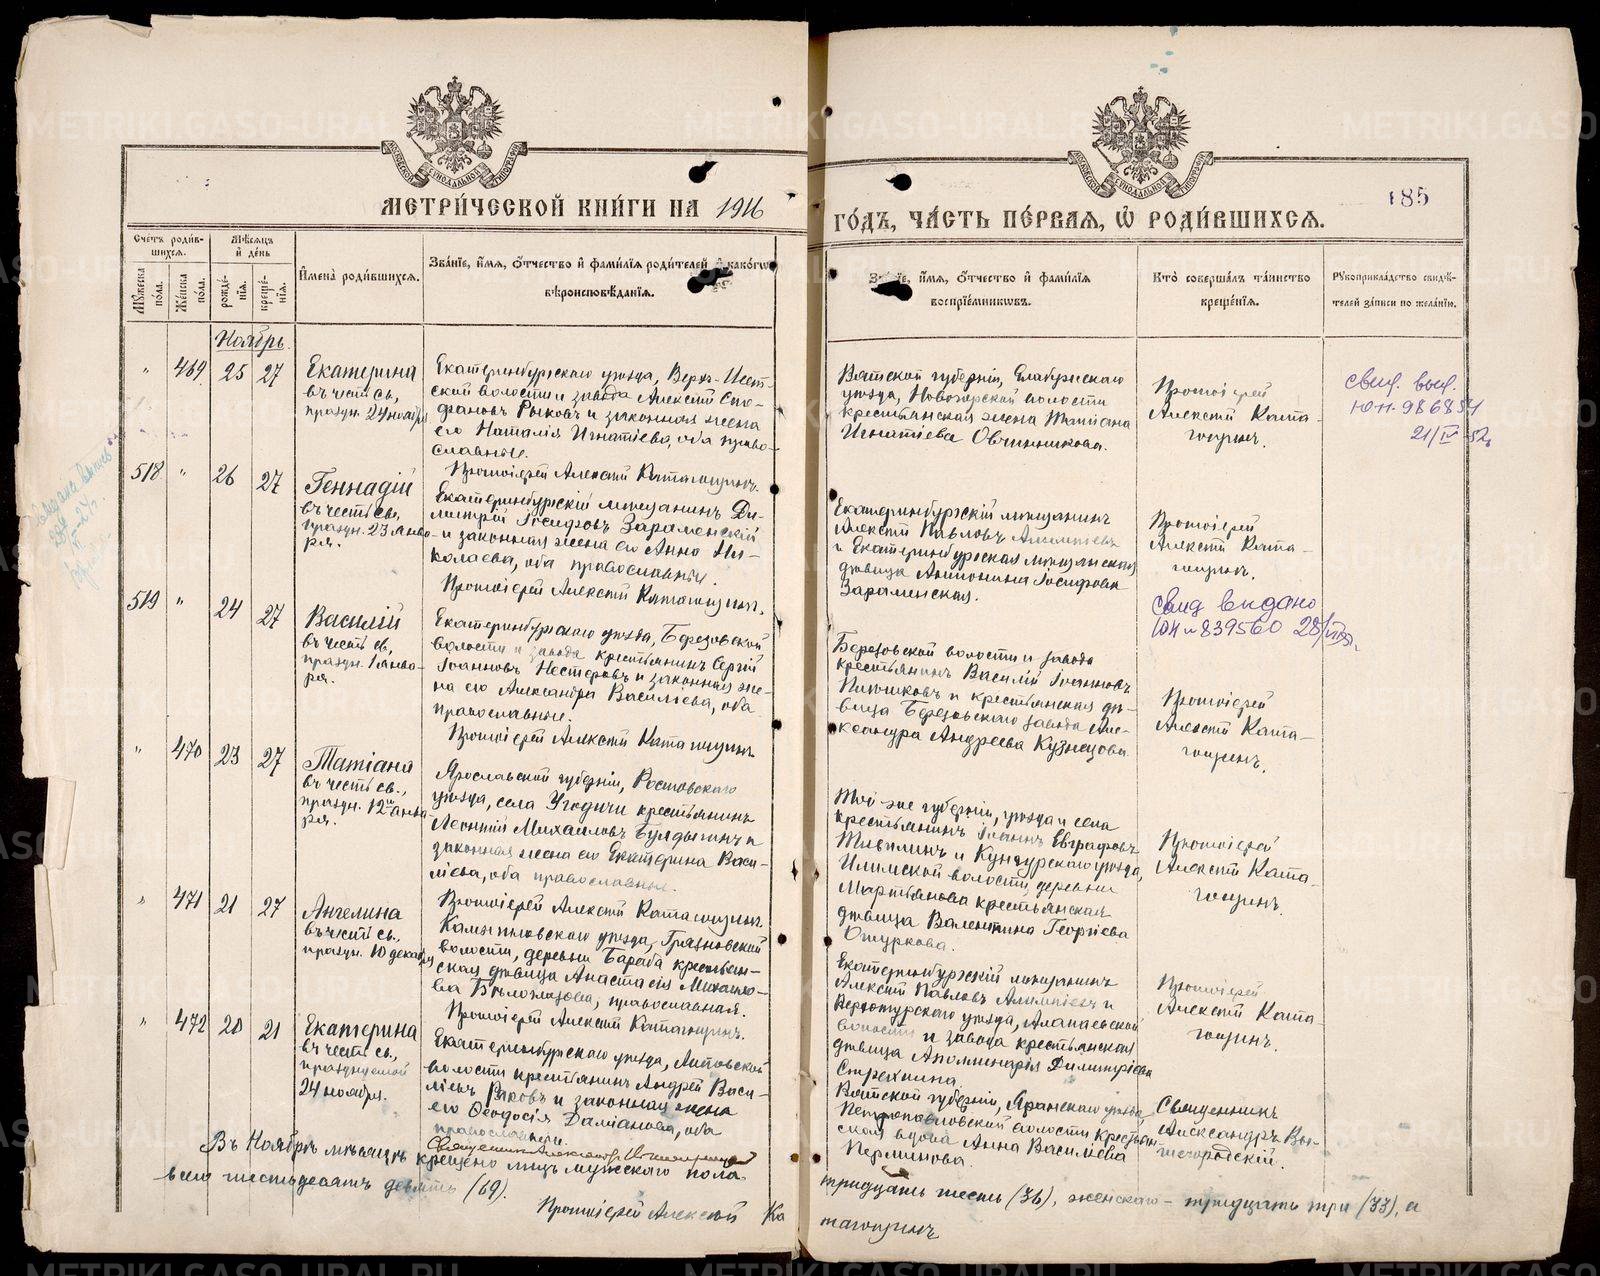 МЕТРИ́ЧЕСКОЙ КНИ́ГИ НА 1916
ГО́ДЪ, ЧА́СТЬ ПЕ́РВАЯ, Ѡ РОДИ́ВШИХСЯ.
185
Счетъ роди́вшихся.
Мужеска по́ла.
Же́нска по́ла.
Мѣсяцъ и де́нь
рожде́нїя.
креще́нїя.
Имена̀ роди́вшихся.
Зва́нїе, и́мя, о́тчество и фами́лїя роди́телей, и како́гѡ
вѣроисповѣ́данїя.
Зва́нїе, и́мя, о́тчество и фами́лїя
воспрїе́мникѡвъ.
Кто̀ соверша́лъ та́инство
креще́нїя.
Рукоприкла́дство свидѣ́-
телей за́писи по жела́нїю.
Ноябрь.
" 469. 25 27
Екатерина
въ честь св.,
праздн. 24 ноября
Екатеринбургскаго уѣзда, Верхъ-Исет-
ской волости и завода Алексѣй Сте-
фановъ Рыковъ и законная жена
его Наталія Игнатіева, оба право-
славные.
Протоіерей Алексѣй Катагощинъ.
Вятской губерніи, Елабужскаго
уѣзда, Новогорской волости
крестьянская жена Татіана
Игнатіева Овчинникова.
Протоіерей
Алексѣй Ката-
гощинъ.
свид. выд.
21/IV 52
518 " 26 27
Геннадій
въ честь св.,
праздн. 23 янва-
ря.
Екатеринбургскій мѣщанинъ Ди-
митрій Іосифовъ Зараменскій
и законная жена его Анна Ни-
колаева, оба православные.
Протоіерей Алексѣй Катагощинъ.
Екатеринбургскій мѣщанинъ
Алексѣй Павловъ Алимпіевъ
и Екатеринбургская мѣщанская
дѣвица Антонина Іосифова
Зараменская.
Протоіерей
Алексѣй Ката-
гощинъ.
519 " 24 27
Василій
въ честь св.,
праздн. 1 янва-
ря.
Екатеринбургскаго уѣзда, Березовской
волости и завода крестьянинъ Сергій
Іоанновъ Нестеровъ и законная же-
на его Александра Василіева, оба
православные.
Протоіерей Алексѣй Катагощинъ
Березовской волости и завода
крестьянинъ Василій Іоанновъ
и крестьянская дѣ-
вица Березовскаго завода Але-
ксандра Андреева Кузнецова.
свид выдано
ЮН № 839560
Протоіерей
Алексѣй Ката-
гощинъ.
" 470 23 27
Татіана
въ честь св.,
праздн. 12го янва
ря.
Ярославской губерніи, Ростовскаго
уѣзда, села Угодичи крестьянинъ
Леонтій Михаиловъ Булдыгинъ и
законная жена его Екатерина Васи-
ліева, оба православные.
Протоіерей Алексѣй Катагощинъ.
Той-же губерніи, уѣзда и села
крестьянинъ Іоаннъ Евграфовъ
и Кунгурскаго уѣзда,
Илимской волости, деревни
Мартьянова крестьянская
дѣвица Валентина Георгіева
Ошуркова.
Протоіерей
Алексѣй Ката-
гощинъ.
" 471 21 27
Ангелина
въ честь св.,
праздн. 10 декабря
Камышловскаго уѣзда, Грязновской
волости, деревни Бараба крестьян-
ская дѣвица Анастасія Михаило-
ва Бѣлоглазова, православная.
Протоіерей Алексѣй Катагощинъ.
Екатеринбургскій мѣщанинъ
Алексѣй Павловъ Алимпіевъ и
Верхотурскаго уѣзда, Алапаевской
волости и завода крестьянская
дѣвица Аполлинарія Димитріева
Стрехнина.
Протоіерей
Алексѣй Ката
гощинъ.
" 472 20 21
Екатерина
въ честь св.,
празднуемой
24 ноября.
Екатеринбургскаго уѣзда, Липовской
волости крестьянинъ Андрей Васи-
ліевъ Раковъ и законная жена
его Ѳеодосія Даміанова, оба
православные.
Вятской губерніи, Яранскаго уѣзда,
Петропавловской волости крестьян-
ская вдова Анна Василіева
Перминова.
Священникъ
Александръ Вы-
шегородскій.
Въ Ноябрѣ мѣсяцѣ крещено лицъ мужескаго пола
тридцать шесть (36), женскаго - тридцать три (33), а
всего шестьдесятъ девять (69).
Протоіерей Алексѣй Ка
тагощинъ
METRIKI.GASO-URAL.RU